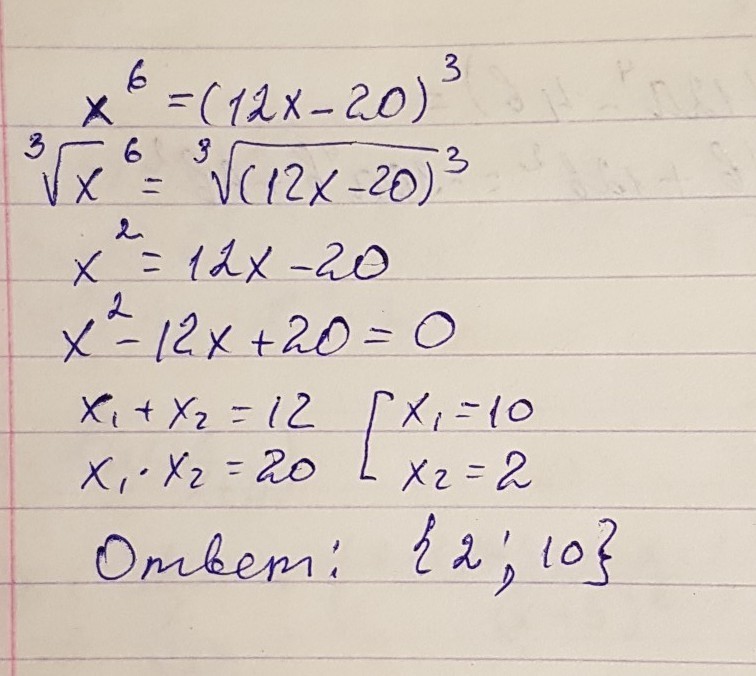 x⁶ = (12x - 20)³
³√x⁶ = ³√(12x - 20)³
x² = 12x - 20
x² - 12x + 20 = 0
x₁ + x₂ = 12 [ x₁ = 10
x₁ · x₂ = 20 x₂ = 2
Ответ: {2; 10}